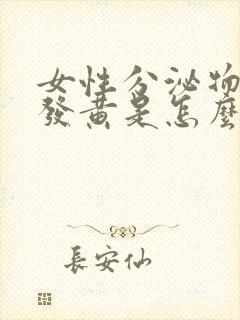 女性分泌物
發黃是怎麼
長安仙